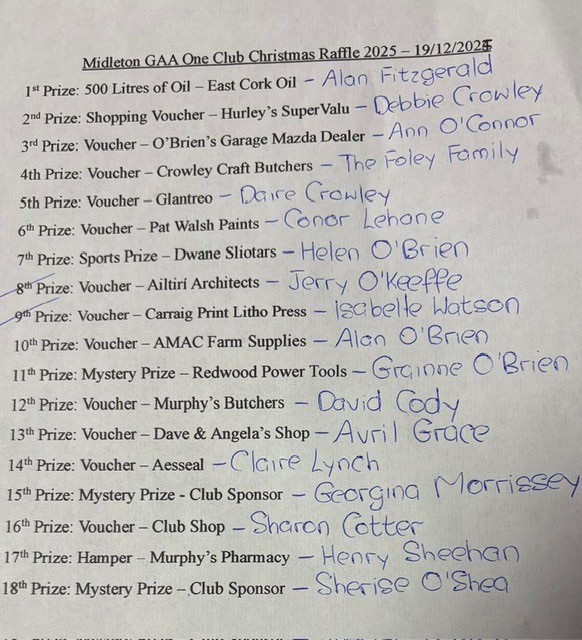 Midleton GAA One Club Christmas Raffle 2025 – 19/12/2025
1st Prize: 500 Litres of Oil – East Cork Oil – Alan Fitzgerald
2nd Prize: Shopping Voucher – Hurley's SuperValu – Debbie Crowley
3rd Prize: Voucher – O'Brien's Garage Mazda Dealer – Ann O'Connor
4th Prize: Voucher – Crowley Craft Butchers – The Foley Family
5th Prize: Voucher – Glantreo – Daire Crowley
6th Prize: Voucher – Pat Walsh Paints – Conor Lehane
7th Prize: Sports Prize – Dwane Sliotars – Helen O'Brien
8th Prize: Voucher – Ailtirí Architects – Jerry O'Keeffe
9th Prize: Voucher – Carraig Print Litho Press – Isabelle Watson
10th Prize: Voucher – AMAC Farm Supplies – Alan O'Brien
11th Prize: Mystery Prize – Redwood Power Tools – Grainne O'Brien
12th Prize: Voucher – Murphy's Butchers – David Cody
13th Prize: Voucher – Dave & Angela's Shop – Avril Grace
14th Prize: Voucher – Aesseal – Claire Lynch
15th Prize: Mystery Prize - Club Sponsor – Georgina Morrissey
16th Prize: Voucher – Club Shop – Sharon Cotter
17th Prize: Hamper – Murphy's Pharmacy – Henry Sheehan
18th Prize: Mystery Prize – Club Sponsor – Sherise O'Shea